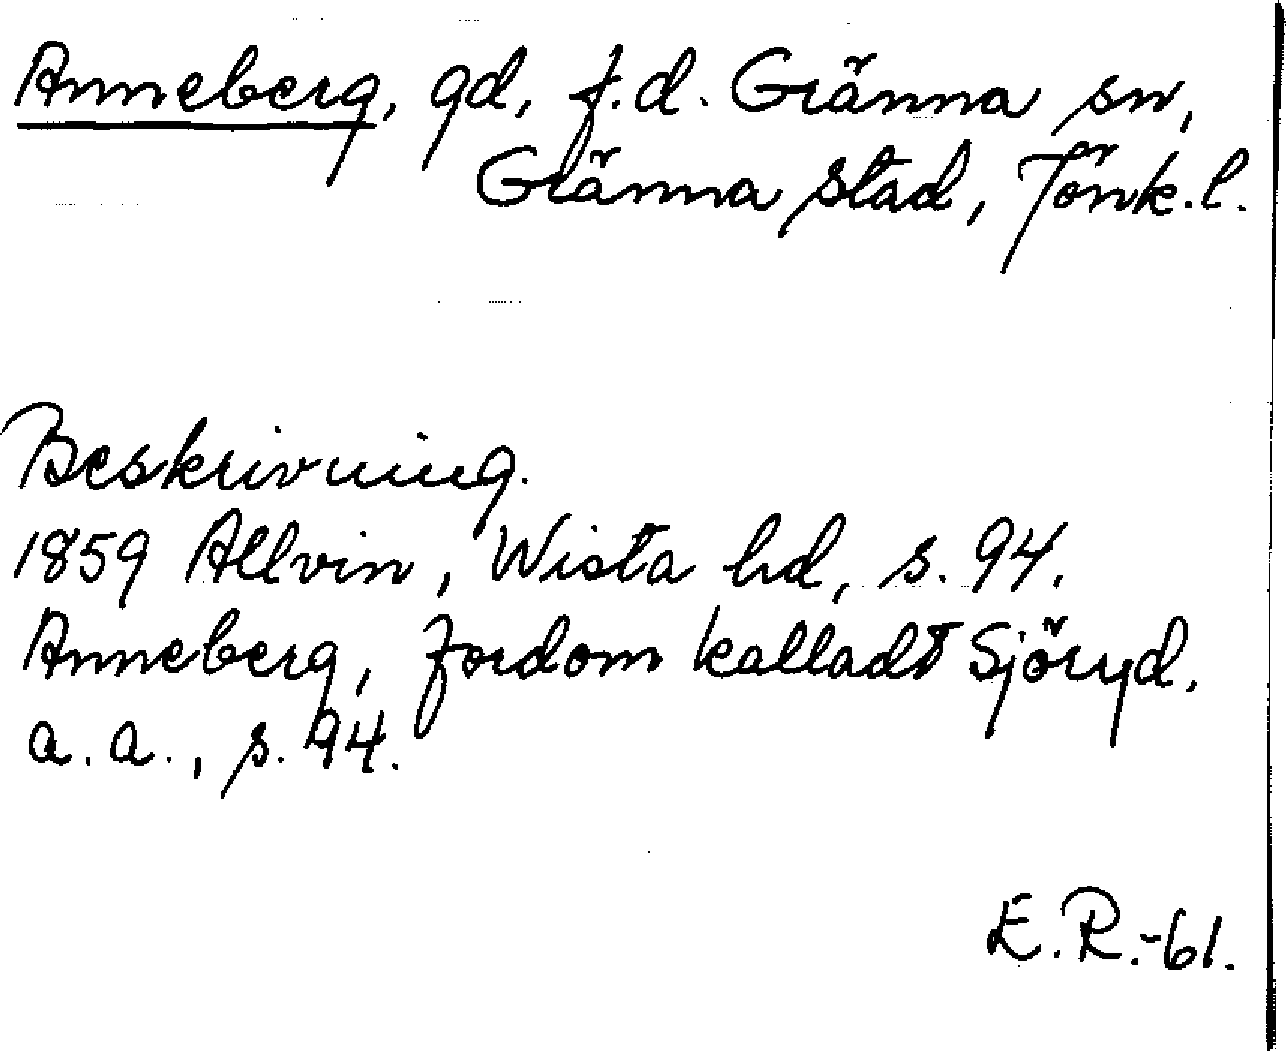 Anneberg, gd, f.d. Gränna sn,
Gränna stad, Jönk.l.
Beskrivning.
1859 Allvin, Wista hd, s. 94.
Anneberg, fordom kalladt Sjöryd.
a.a., s. 94.
E.R.-61.